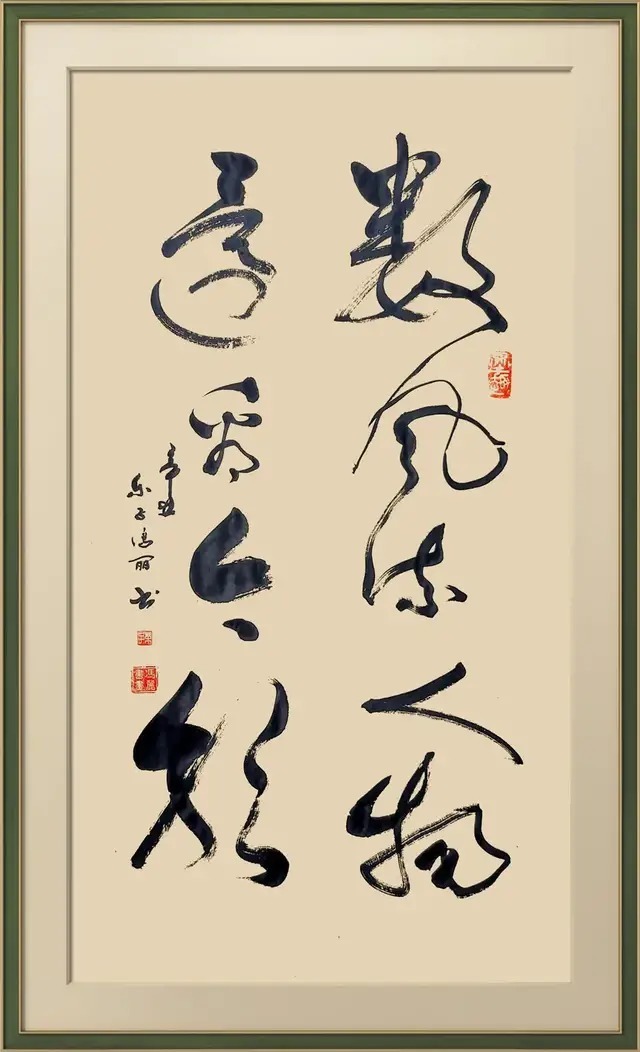 数风流人物
还看今朝
辛丑
乐子鸿丽书